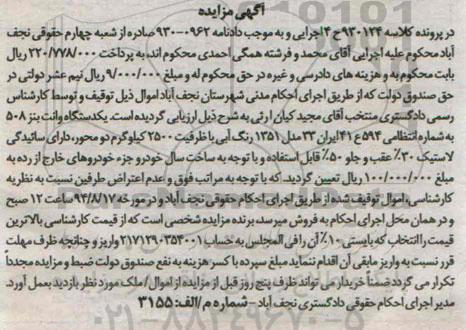 آگهی مزایده
در پرونده کلاسه ۹۳۰۱۲۴ح ۴ اجرایی و به موجب دادنامه ۰۹۶۲-۹۳۰ صادره از شعبه چهارم حقوقی نجف
آباد محکوم علیه اجرایی آقای محمد و فرشته همگی احمدی محکوم اند، به پرداخت ۲۲۰/۷۷۸/۰۰۰ ریال
بابت محکوم به و هزینه های دادرسی و غیره در حق محکوم له و مبلغ ۹/۰۰۰/۰۰۰ ریال نیم عشر دولتی در
حق صندوق دولت که از طریق اجرای احکام مدنی شهرستان نجف آباد اموال ذیل توقیف و توسط کارشناس
رسمی دادگستری منتخب آقای مجید کیان ارثی به شرح ذیل ارزیابی گردیده است. یکدستگاه وانت بنز ۵۰۸
به شماره انتظامی ۵۹۴ع۴۱ ایران ۳۳ مدل ۱۳۵۱ رنگ آبی با ظرفیت ۲۵۰۰ کیلوگرم دو محور، دارای سائیدگی
لاستیک ۳۰٪ عقب و جلو ۵۰٪ قابل استفاده و با توجه به ساخت سال خودرو جزء خودروهای خارج از رده به
مبلغ ۱۰۰/۰۰۰/۰۰۰ ریال تعیین گردید. که با توجه به مراتب فوق و عدم اعتراض طرفین نسبت به نظریه
کارشناسی، اموال توقیف شده از طریق اجرای احکام حقوقی نجف آباد و در مورخه ۹۴/۸/۱۷ ساعت ۱۲ صبح
و در همان محل اجرای احکام به فروش میرسد. برنده مزایده شخصی است که از قیمت کارشناسی بالاترین
قیمت را انتخاب که بایستی ۱۰٪ آن را فی المجلس به حساب ۲۱۷۱۲۹۰۳۵۴۰۰۱ واریز و چنانچه ظرف مهلت
قرر نسبت به واریز مابقی آن اقدام ننماید مبلغ سپرده با کسر هزینه به نفع صندوق دولت ضبط و مزایده مجدداً
تکرار می گردد ضمناً خریدار می تواند ظرف پنج روز قبل از مزایده از اموال/ملک مورد نظر بازدید بعمل آورد.
مدیر اجرای احکام حقوقی دادگستری نجف آباد - شماره م/الف: ۳۱۵۵
۰۲۱-۸۸۳۴۹۶۷۰-۵